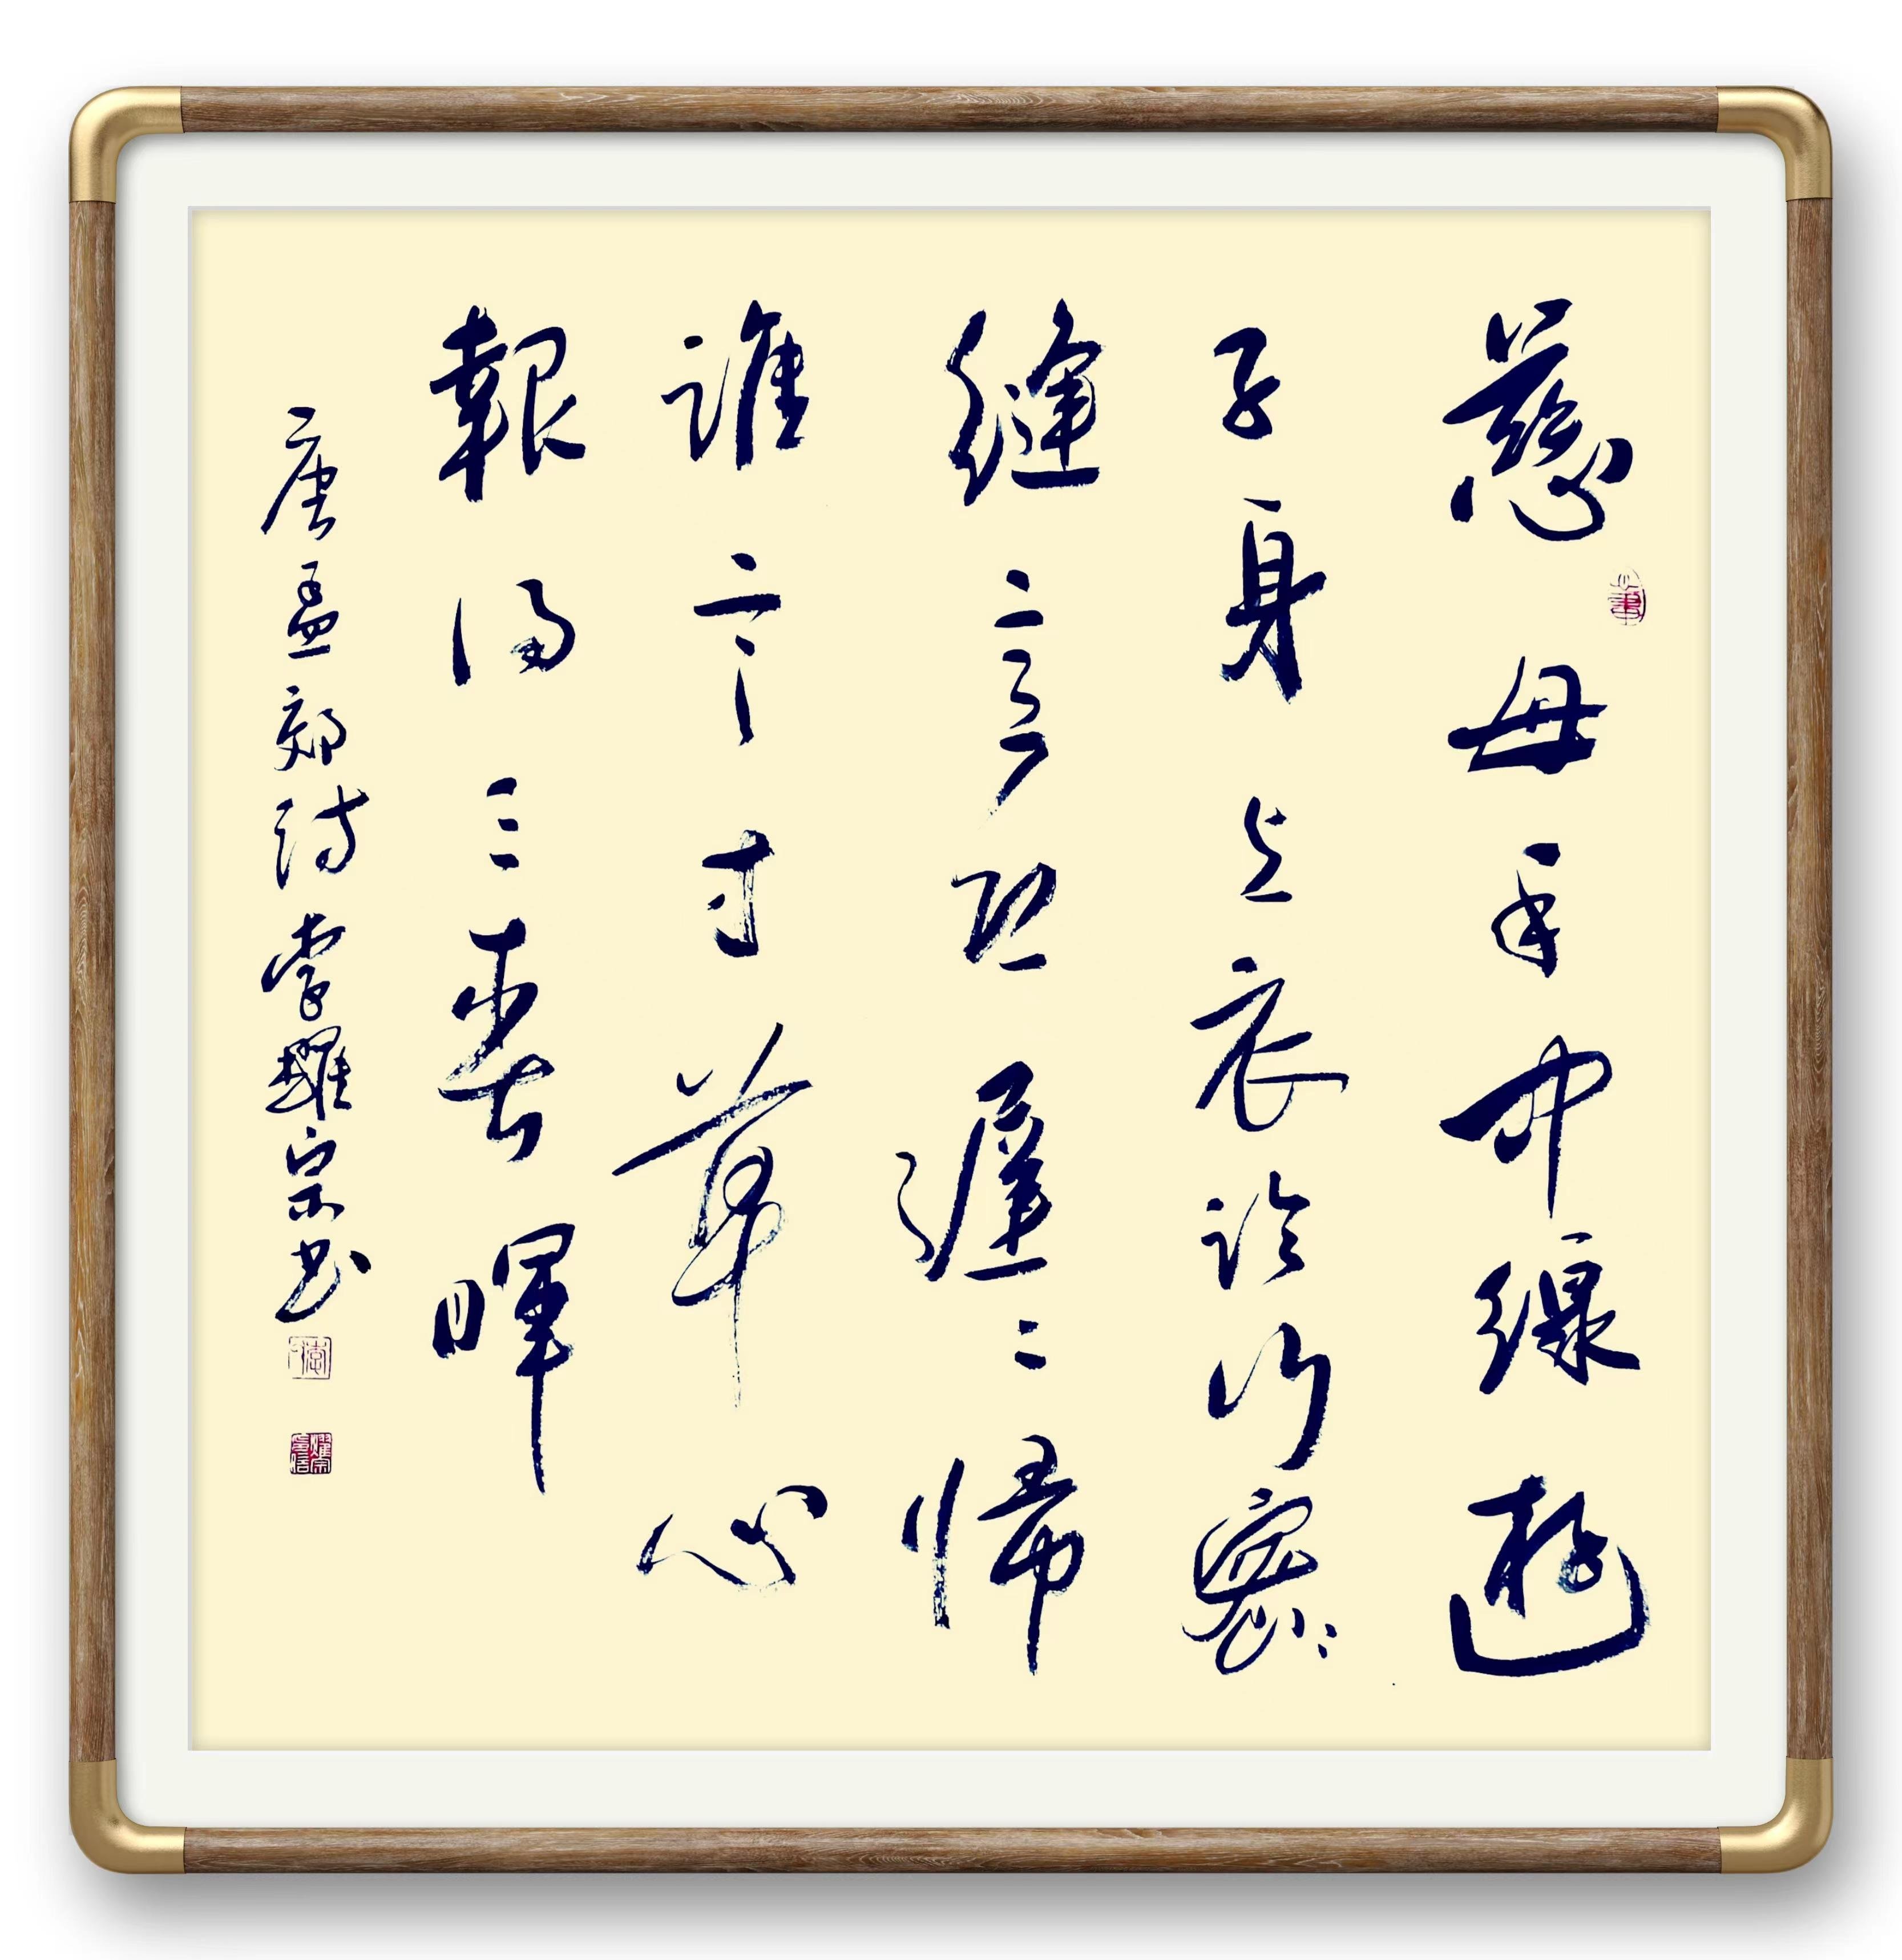 慈母手中線遊
子身上衣臨行密〻
縫意恐遲〻歸
誰言寸草心
報得三春暉
唐孟郊詩李耀宗书